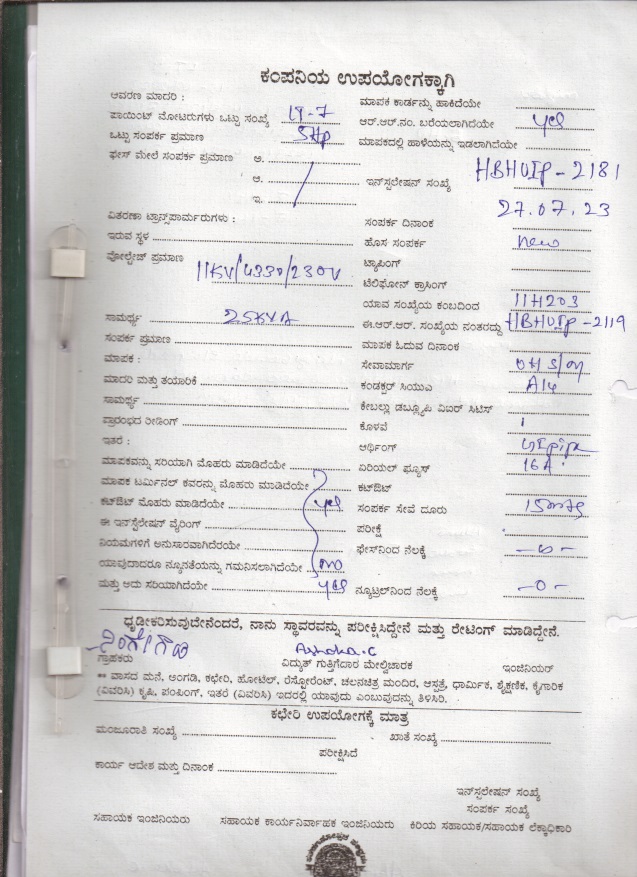 ಕಂಪನಿಯ ಉಪಯೋಗಕ್ಕಾಗಿ
ಆವರಣ ಮಾದರಿ : ಮಾಪಕ ಕಾರ್ಡನ್ನು ಹಾಕಿದೆಯೇ
ಪಾಯಿಂಟ್ ಮೋಟರುಗಳು ಒಟ್ಟು ಸಂಖ್ಯೆ ಆರ್.ಆರ್.ನಂ. ಬರೆಯಲಾಗಿದೆಯೇ yes
ಒಟ್ಟು ಸಂಪರ್ಕ ಪ್ರಮಾಣ 5Hp ಮಾಪಕದಲ್ಲಿ ಹಾಳೆಯನ್ನು ಇಡಲಾಗಿದೆಯೇ
ಫೇಸ್ ಮೇಲೆ ಸಂಪರ್ಕ ಪ್ರಮಾಣ ಅ.
ಆ. ಇನ್‌ಸ್ಟಲೇಷನ್ ಸಂಖ್ಯೆ HBHUIP-2181
ಇ. 27.07.23
ವಿತರಣಾ ಟ್ರಾನ್ಸ್‌ಪಾರ್ಮರುಗಳು : ಸಂಪರ್ಕ ದಿನಾಂಕ
ಇರುವ ಸ್ಥಳ ಹೊಸ ಸಂಪರ್ಕ new
ವೋಲ್ಟೇಜ್ ಪ್ರಮಾಣ 11KV/433v/230V ಟ್ಯಾಪಿಂಗ್
ಟೆಲಿಫೋನ್ ಕ್ರಾಸಿಂಗ್
ಯಾವ ಸಂಖ್ಯೆಯ ಕಂಬದಿಂದ 11H203
ಸಾಮರ್ಥ್ಯ 25KVA ಈ.ಆರ್.ಆರ್. ಸಂಖ್ಯೆಯ ನಂತರದ್ದು HBHUIP-2119
ಸಂಪರ್ಕ ಪ್ರಮಾಣ ಮಾಪಕ ಓದುವ ದಿನಾಂಕ
ಮಾಪಕ : ಸೇವಾಮಾರ್ಗ
ಮಾದರಿ ಮತ್ತು ತಯಾರಿಕೆ ಕಂಡಕ್ಟರ್ ಸಿಯುಎ
ಸಾಮರ್ಥ್ಯ ಕೇಬಲ್ಲು ಡಬ್ಲ್ಯೂಪಿ ವಿಐಆರ್ ಸಿಟಿಸ್
ಪ್ರಾರಂಭದ ರೀಡಿಂಗ್ ಕೊಳವೆ
ಇತರೆ : ಆರ್ಥಿಂಗ್
ಮಾಪಕವನ್ನು ಸರಿಯಾಗಿ ಮೊಹರು ಮಾಡಿದೆಯೇ ಏರಿಯಲ್ ಫ್ಯೂಸ್ 16A
ಮಾಪಕ ಟರ್ಮಿನಲ್ ಕವರನ್ನು ಮೊಹರು ಮಾಡಿದೆಯೇ ಕಟ್‌ಔಟ್
ಕಟ್‌ಔಟ್ ಮೊಹರು ಮಾಡಿದೆಯೇ yes ಸಂಪರ್ಕ ಸೇವೆ ದೂರು 15mts
ಈ ಇನ್‌ಸ್ಟಲೇಷನ್ ವೈರಿಂಗ್ ಪರೀಕ್ಷೆ
ನಿಯಮಗಳಿಗೆ ಅನುಸಾರವಾಗಿದೆರೆಯೇ ಫೇಸ್‌ನಿಂದ ನೆಲಕ್ಕೆ -0-
ಯಾವುದಾದರೂ ನ್ಯೂನತೆಯನ್ನು ಗಮನಿಸಲಾಗಿದೆಯೇ no
ಮತ್ತು ಅದು ಸರಿಯಾಗಿದೆಯೇ yes ನ್ಯೂಟ್ರಲ್‌ನಿಂದ ನೆಲಕ್ಕೆ -0-
ಧೃಡೀಕರಿಸುವುದೇನೆಂದರೆ, ನಾನು ಸ್ಥಾವರವನ್ನು ಪರೀಕ್ಷಿಸಿದ್ದೇನೆ ಮತ್ತು ರೇಟಿಂಗ್ ಮಾಡಿದ್ದೇನೆ.
Ashoka.C
ಗ್ರಾಹಕರು ವಿದ್ಯುತ್ ಗುತ್ತಿಗೆದಾರ ಮೇಲ್ವಿಚಾರಕ ಇಂಜಿನಿಯರ್
** ವಾಸದ ಮನೆ, ಅಂಗಡಿ, ಕಛೇರಿ, ಹೋಟೆಲ್, ರೆಸ್ಟೋರೆಂಟ್, ಚಲನಚಿತ್ರ ಮಂದಿರ, ಆಸ್ಪತ್ರೆ, ಧಾರ್ಮಿಕ, ಶೈಕ್ಷಣಿಕ, ಕೈಗಾರಿಕ
(ವಿವರಿಸಿ) ಕೃಷಿ, ಪಂಪಿಂಗ್, ಇತರೆ (ವಿವರಿಸಿ) ಇದರಲ್ಲಿ ಯಾವುದು ಎಂಬುವುದನ್ನು ತಿಳಿಸಿರಿ.
ಕಛೇರಿ ಉಪಯೋಗಕ್ಕೆ ಮಾತ್ರ
ಮಂಜೂರಾತಿ ಸಂಖ್ಯೆ ಖಾತೆ ಸಂಖ್ಯೆ
ಪರೀಕ್ಷಿಸಿದೆ
ಕಾರ್ಯ ಆದೇಶ ಮತ್ತು ದಿನಾಂಕ
ಇನ್‌ಸ್ಟಲೇಷನ್ ಸಂಖ್ಯೆ
ಸಂಪರ್ಕ ಸಂಖ್ಯೆ
ಸಹಾಯಕ ಇಂಜಿನಿಯರು ಸಹಾಯಕ ಕಾರ್ಯನಿರ್ವಾಹಕ ಇಂಜಿನಿಯರು ಕಿರಿಯ ಸಹಾಯಕ/ಸಹಾಯಕ ಲೆಕ್ಕಾಧಿಕಾರಿ